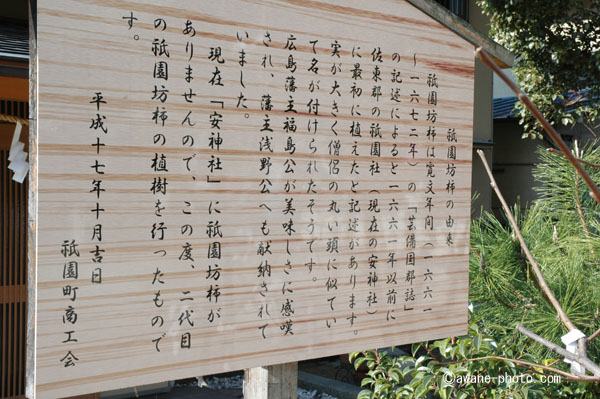 祇園坊柿の由来
祇園坊柿は寛文年間（一六六一
〜一六七二年）の「芸備国郡誌」
の記述によると一六六一年以前に
佐東郡の祇園社（現在の安神社）
に最初に植えたと記述があります。
実が大きく僧侶の丸い頭に似てい
て名が付けられたそうです。
広島藩主福島公が美味しさに感嘆
され、藩主浅野公へも献納されて
いました。
現在「安神社」に祇園坊柿が
ありませんので、この度、二代目
の祇園坊柿の植樹を行ったもので
す。
平成十七年十月吉日
祇園町商工会
©ayane-photo.com